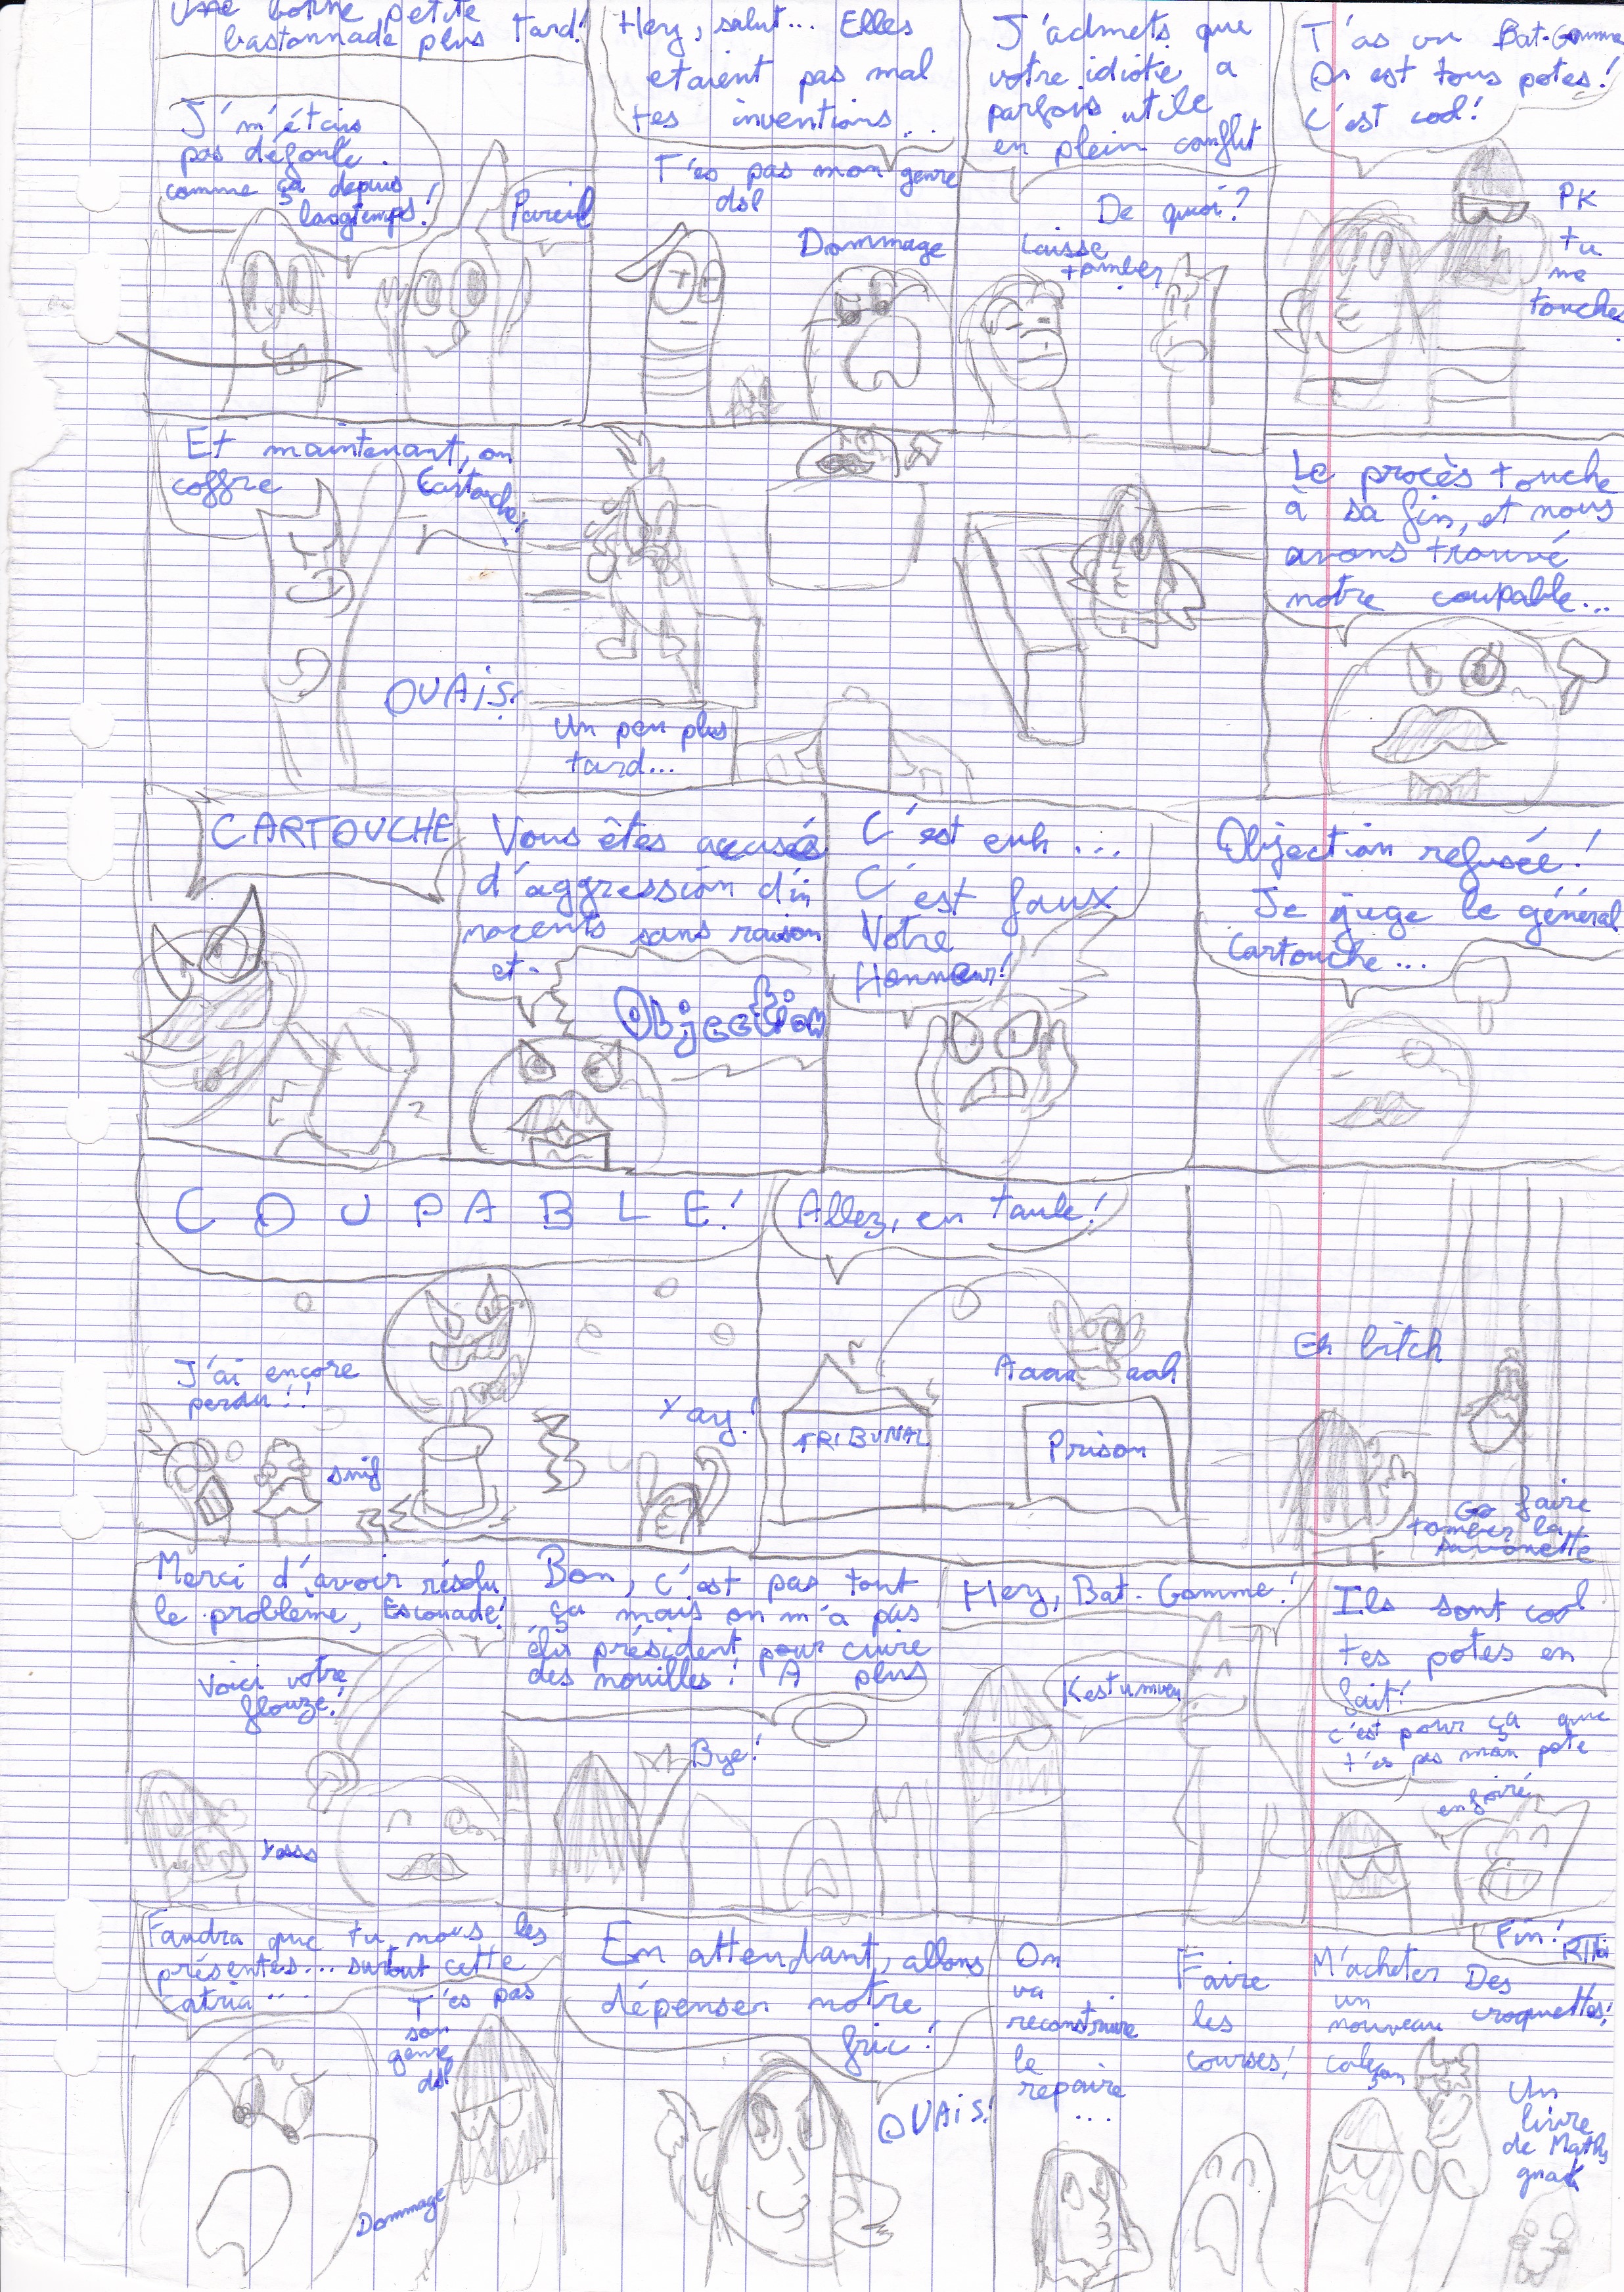 Une bonne petite
bastonnade plus tard!
J'm'étais
pas défoulé
comme ça depuis
longtemps!
Pareil
Hey, salut... Elles
etaient pas mal
tes inventions...
T'es pas mon genre
dsl
Dommage
J'admets que
votre idiotie a
parfois utile
en plein conflit
De quoi?
Laisse
tomber
T'as vu Bat-Gomme
On est tous potes!
C'est cool!
PK
tu
me
touches
Et maintenant, on
coffre
Cartouche!
OUAIS!
Un peu plus
tard...
Le procès touche
à sa fin, et nous
avons trouvé
notre coupable...
CARTOUCHE
Vous êtes accusés
d'aggression d'in
nocents sans raison
et-
Objection
C'est euh...
C'est faux
Votre
Honneur!
Objection refusée!
Je juge le général
Cartouche...
COUPABLE!
J'ai encore
perdu!!
snif
Yay!
Allez, en taule!
Aaaa aah
TRIBUNAL
Prison
Eh bitch
Go faire
tomber la
savonette
Merci d'avoir résolu
le problème, Escouade!
Voici votre
flouze!
Yass
Bon, c'est pas tout
ça mais on m'a pas
élu président pour cuire
des nouilles! A plus
Bye!
Hey, Bat-Gomme!
Kestumveu
Ils sont cool
tes potes en
fait!
c'est pour ça que
t'es pas mon pote
enfoiré
Faudra que tu nous les
présentes... surtout cette
Catria...
T'es pas
son
genre
dsl
Dommage
En attendant, allons
dépenser notre
fric!
OUAIS!
On
va
reconstruire
le
repaire
...
Faire
les
courses!
M'acheter
un
nouveau
caleçon
Des
croquettes!
Un
livre
de Maths
gnak
Fin!